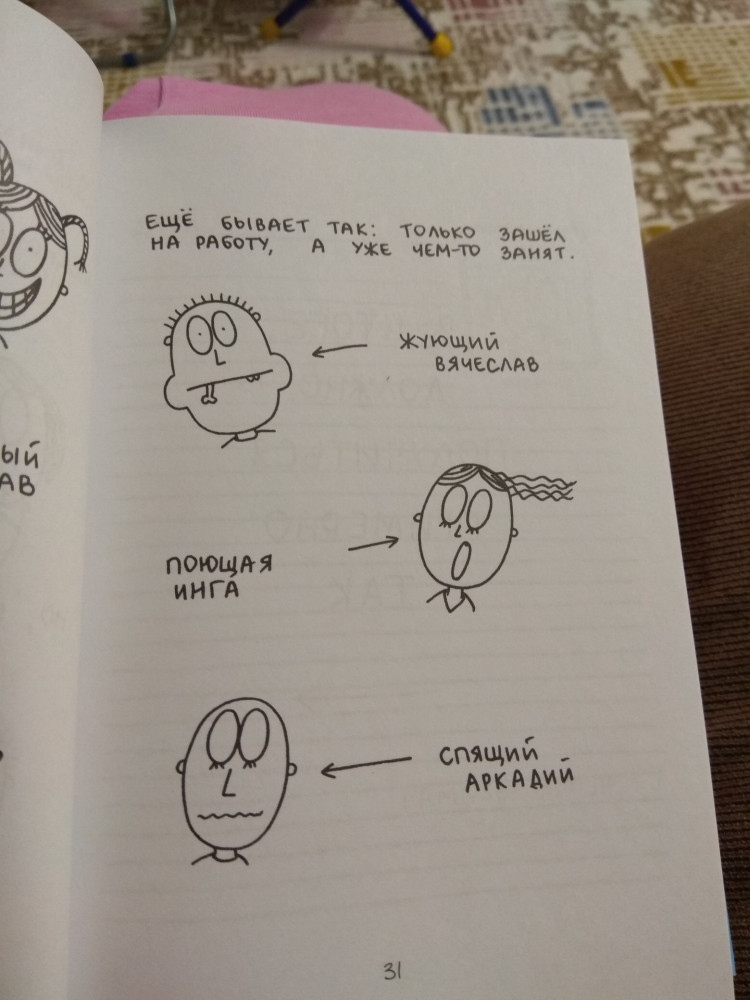 ЕЩЁ БЫВАЕТ ТАК: ТОЛЬКО ЗАШЁЛ
НА РАБОТУ, А УЖЕ ЧЕМ-ТО ЗАНЯТ.
ЖУЮЩИЙ
ВЯЧЕСЛАВ
ЫЙ
АВ
ПОЮЩАЯ
ИНГА
СПЯЩИЙ
АРКАДИЙ
31